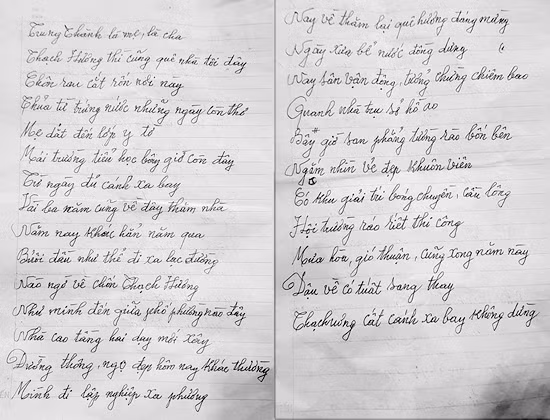 Trung Thành là mẹ, là cha
Thạch Hương thì cũng quê nhà tôi đây
Chôn rau cắt rốn nơi này
Thủa từ trứng nước những ngày còn thơ
Mẹ dắt đến lớp y tờ
Mái trường tiểu học bây giờ còn đây
Từ ngày đủ cánh xa bay
Vài ba năm cũng về đây thăm nhà
Năm nay khác hẳn năm qua
Bước đầu như thể đi xa lạc đường
Nào ngờ về chốn Thạch Hương
Như mình đến giữa phố phường nào đây
Nhà cao tầng hai dãy mới xây
Đường thông, ngõ đẹp hôm nay khác thường
Mình đi lập nghiệp xa phương
Nay về thăm lại quê hương đáng mừng
Ngày xưa bể nước đồng dưng
Nay sân vận động, tưởng chừng chiêm bao
Quanh nhà trụ sở hồ ao
Bây giờ san phẳng tường rào bốn bên
Ngắm nhìn vẻ đẹp khuôn viên
Có khu giải trí bóng chuyền, cầu lông
Hội trường ráo riết thi công
Mưa hòa, gió thuận, cũng xong năm này
Dậu về có tuất sang thay
Thạch hương cất cánh xa bay không dừng